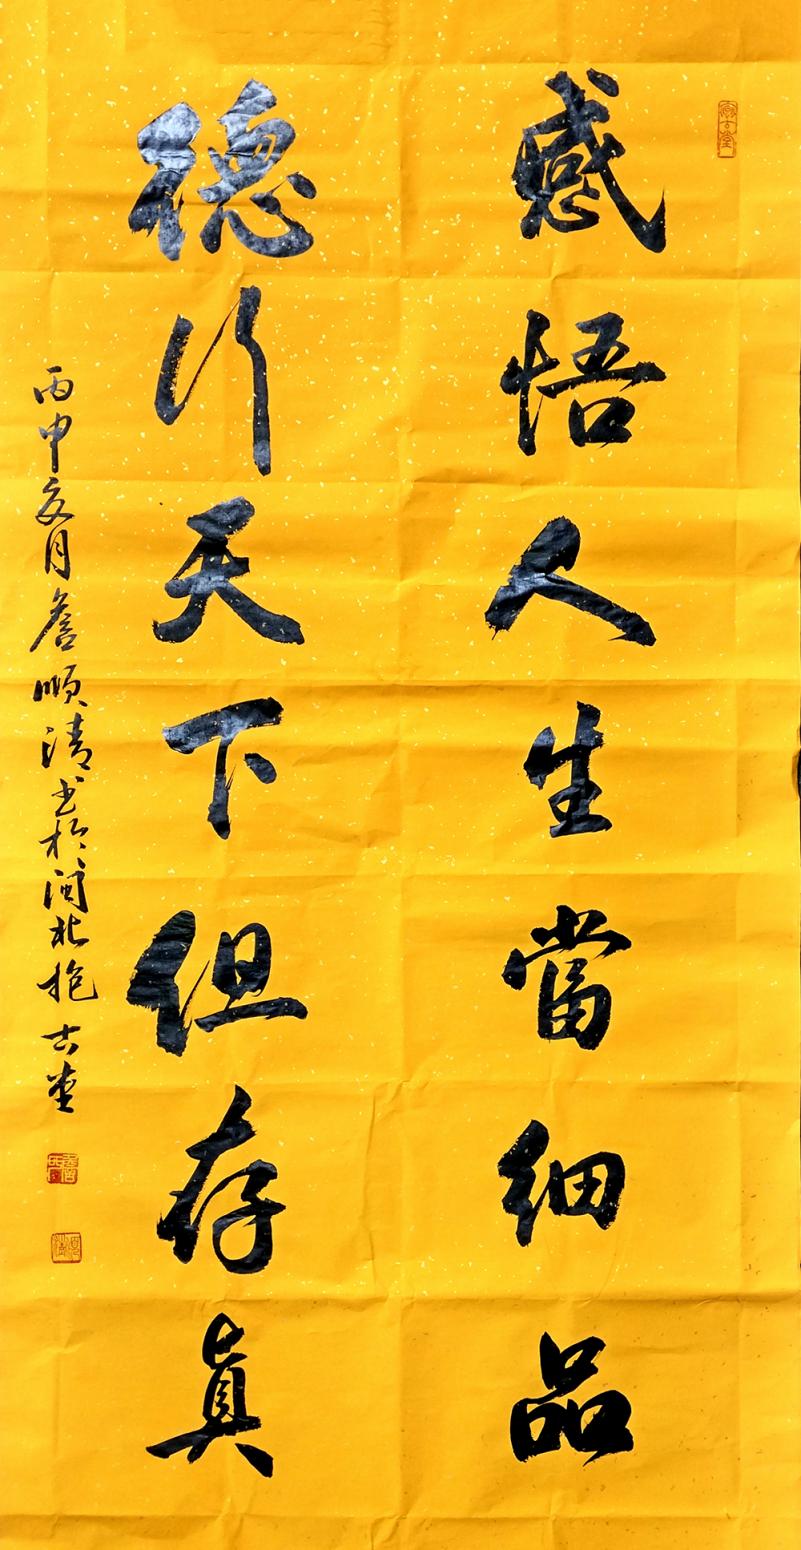 感悟人生當細品
德行天下但存真
丙申亥月詹順清书於閩北抱古堂